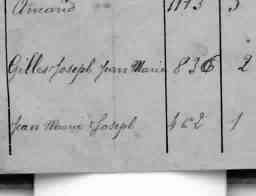 Amand 1173 3
Gilles Joseph Jean Marie 836 2
Jean Marie Joseph 462 1